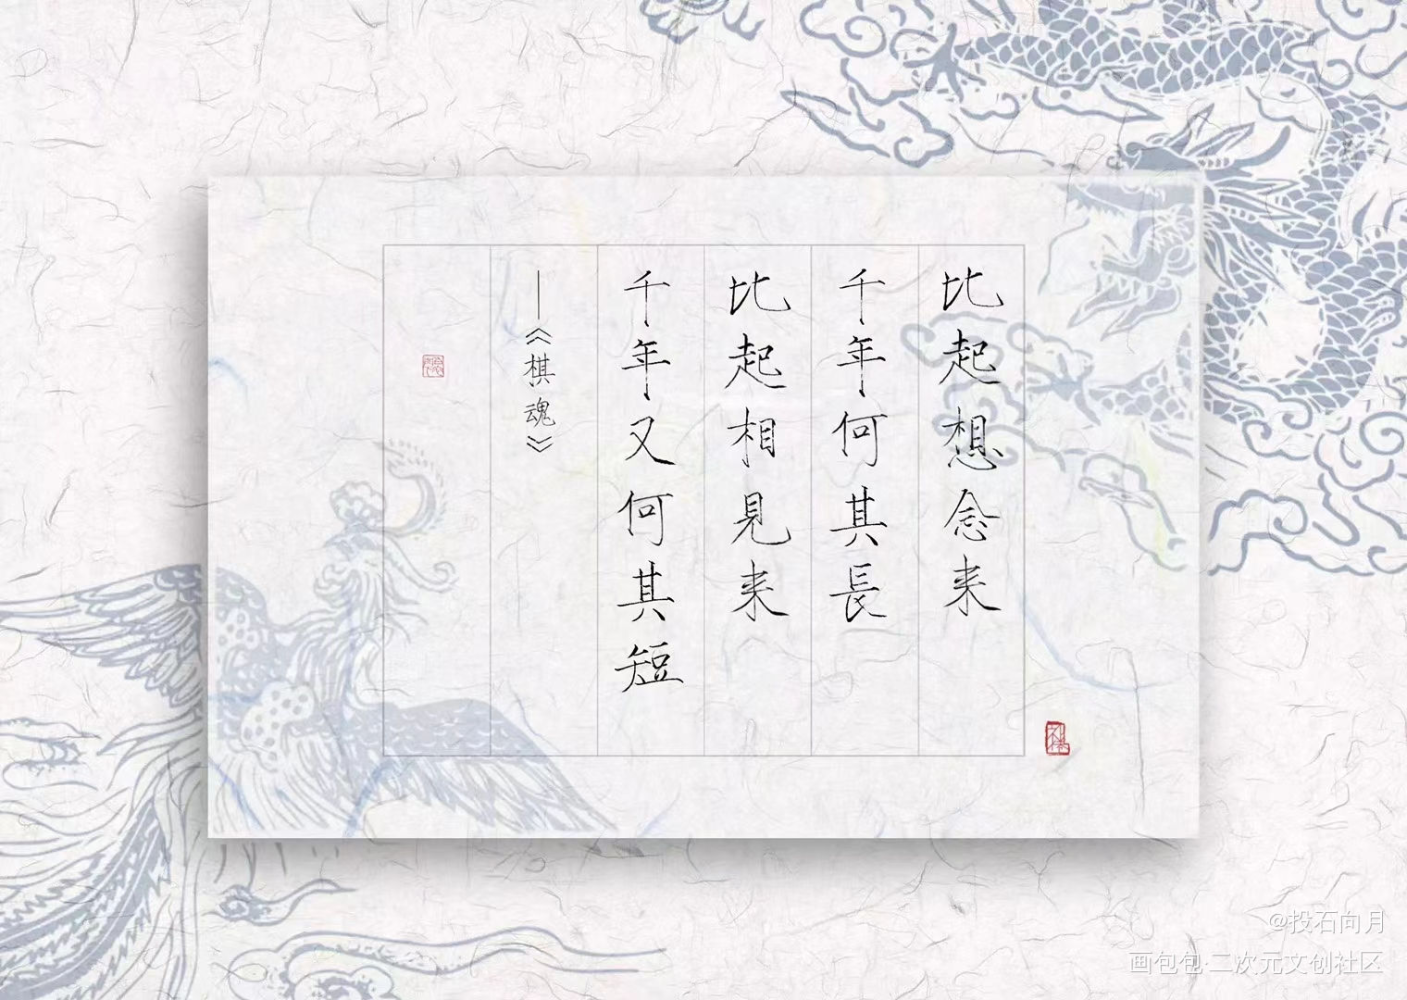 比起想念来
千年何其長
比起相見来
千年又何其短
——《棋魂》
@投石向月
画包包·二次元文创社区